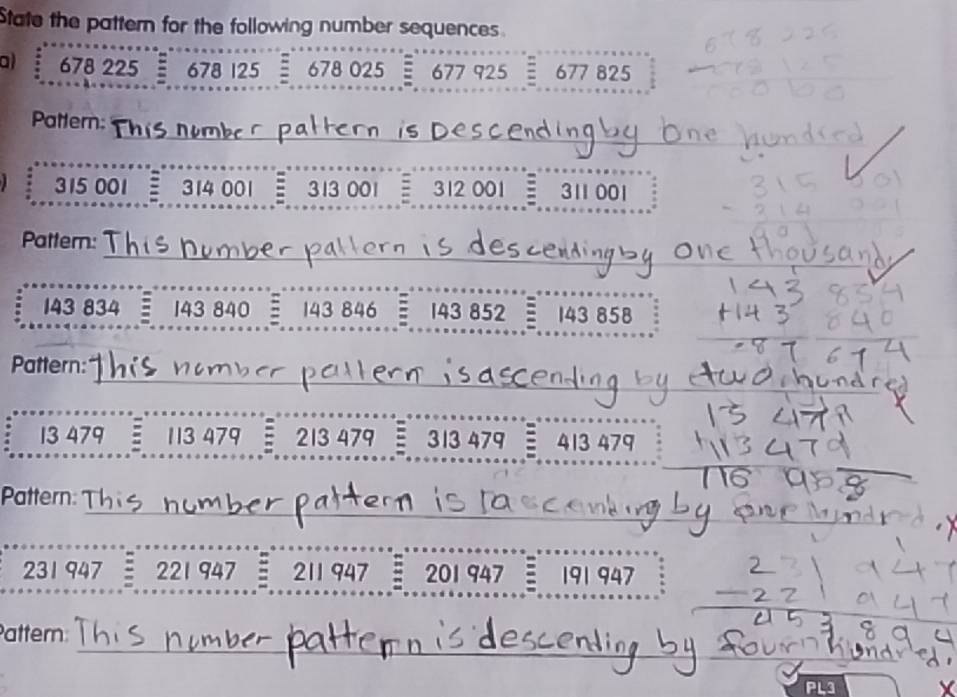 State the pattern for the following number sequences.
a) 678 225 678 125 678 025 677 925 677 825
Pattern: This number pattern is Descending by one hundred
315 001 314 001 313 001 312 001 311 001
Pattern: This number pattern is descending by one thousand.
143 834 143 840 143 846 143 852 143 858
Pattern: This number pattern is ascending by two hundred
13 479 113 479 213 479 313 479 413 479
Pattern: This number pattern is ascending by one hundred.
231 947 221 947 211 947 201 947 191 947
Pattern: This number pattern is descending by four hundred.
PL3